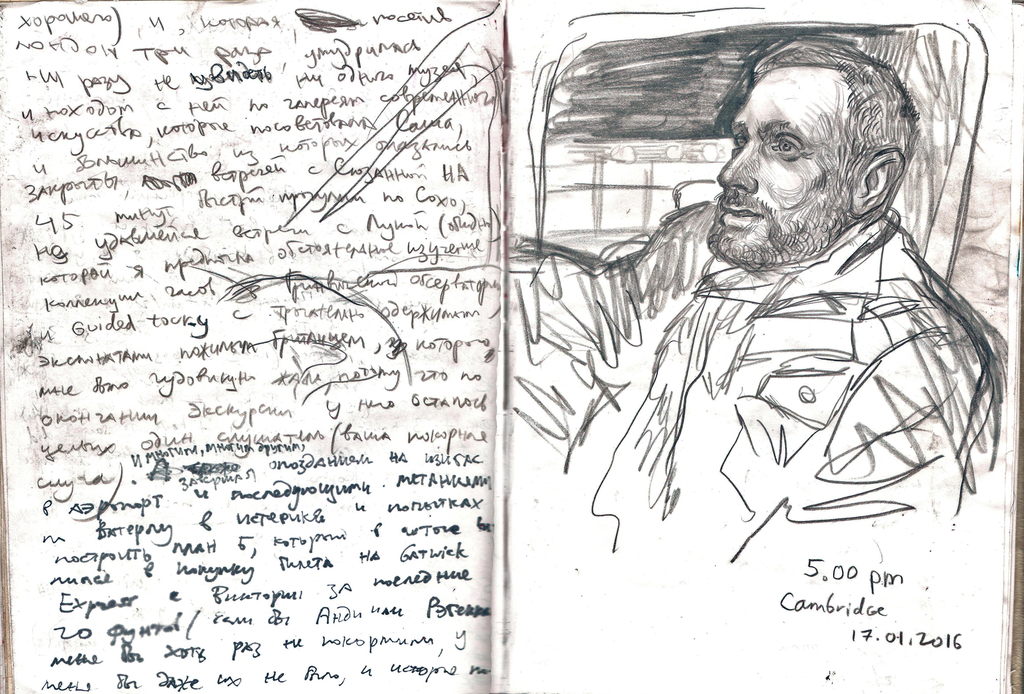 хорошего) и, которая, посетив
Лондон три раза, умудрилась
ни разу не увидеть ни одного музея
и походом с ней по галереям современного
искусства, которые посоветовала Саша,
и большинство из которых оказались
закрыты, встречей с Сюзанной на
45 минут, быстрой прогулки по Сохо,
не удавшейся встречи с Лукой (обедни)
которой я предпочла обстоятельное изучение
коллекции часов в Гринвичской обсерватории
и Guided tour с трогательно одержимым
экспонатами пожилым британцем, из которого
мне было чудовищно жаль потому что по
окончании экскурсии у него осталось
целых один слушатель (ваша покорная
слуга). и многим, многим другим,
закрывая опозданием на
в аэропорт и последующими метаниями
по Ватерлоо в истерике и попытках
построить план Б, который в итоге
вылился в покупку билета на Gatwick
Express с Виктории за последние
20 фунтов (если бы Анди или
меня бы хоть раз не покормили, у
меня бы даже их не было, и
5.00 pm
Cambridge
17.01.2016